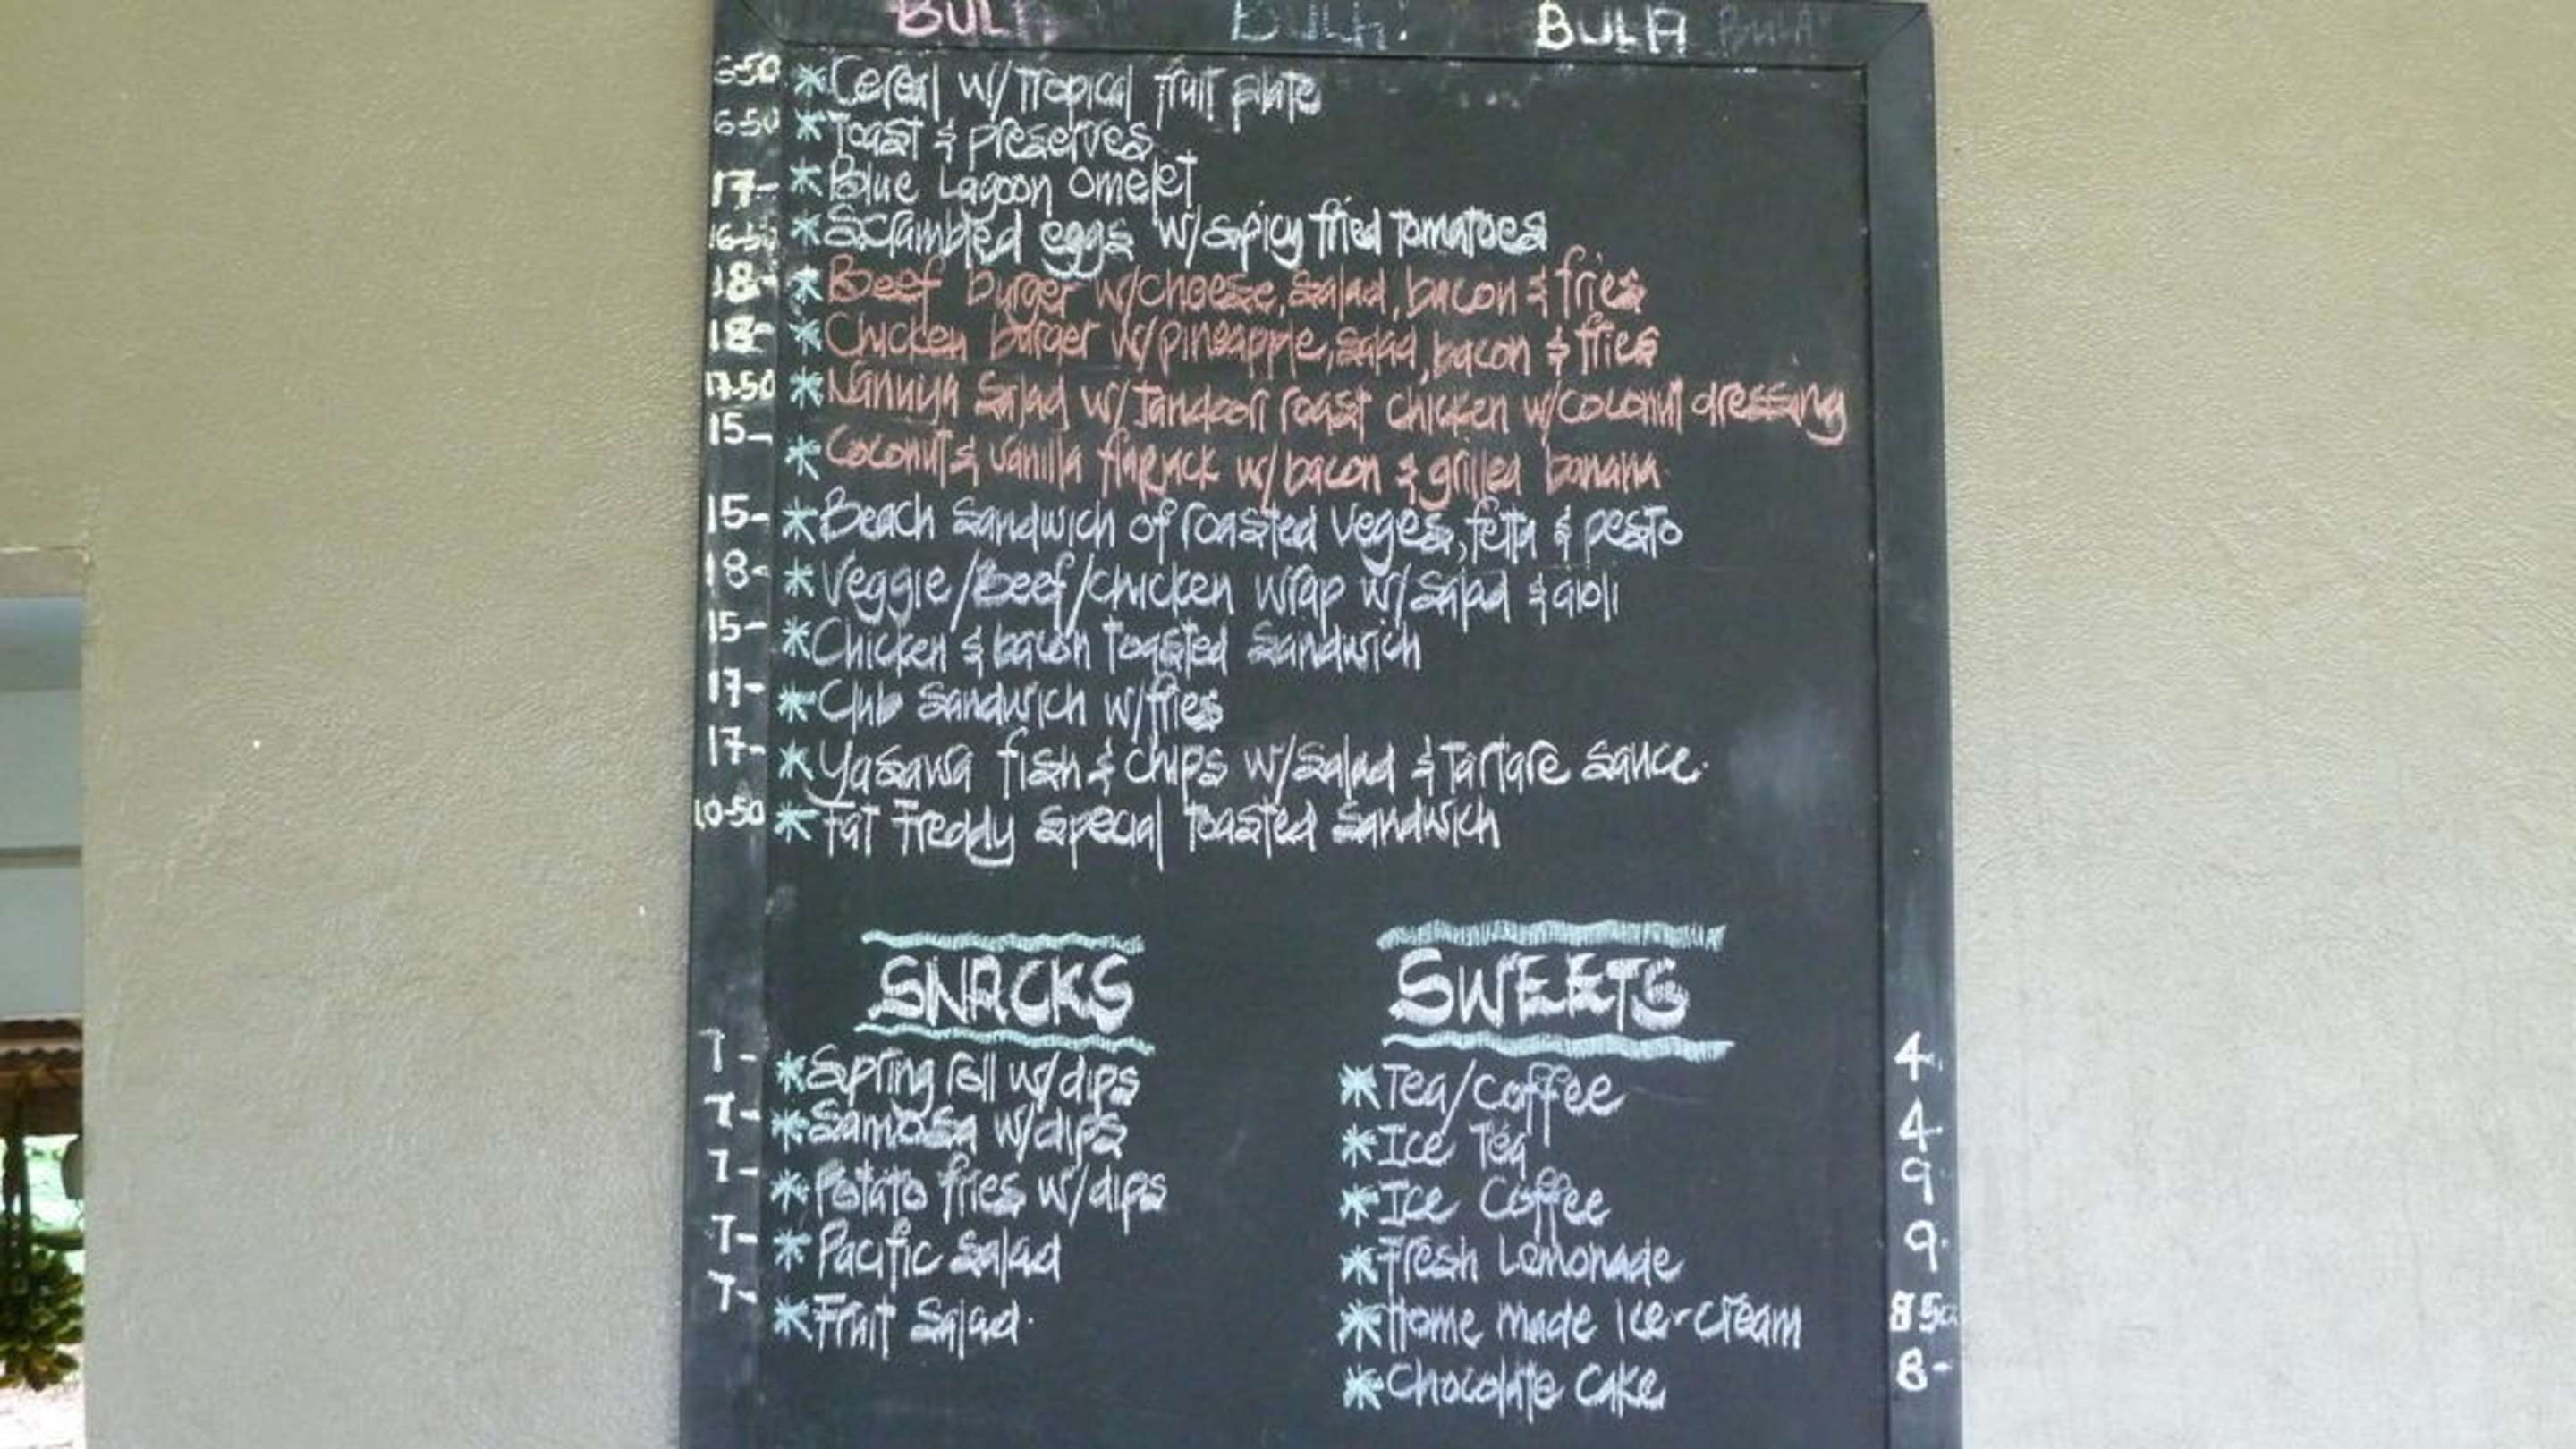 BULA BULA! BULA BULA
6-50 *Cereal w/Tropical fruit plate
6-50 *Toast & preserves
17- *Blue Lagoon omelet
16-50 *Scrambled eggs w/spicy fried tomatoes
18- *Beef burger w/cheese, salad, bacon & fries
18- *Chicken burger w/pineapple, salad, bacon & fries
17-50 *Nanuya Salad w/Tandoori roast chicken w/coconut dressing
15- *Coconut & vanilla flapjack w/bacon & grilled banana.
15- *Beach Sandwich of roasted veges, fetta & pesto
18- *Veggie/Beef/chicken wrap w/salad & aioli
15- *Chicken & bacon Toasted Sandwich
17- *Club Sandwich w/fries
17- *Yasawa fish & chips w/salad & Tartare sauce.
10-50 *Fat Freddy special toasted Sandwich
SNACKS
7- *Spring roll w/dips
7- *Samosa w/dips
7- *Potato fries w/dips
7- *Pacific Salad
7- *Fruit Salad.
SWEETS
*Tea/coffee 4.
*Ice Tea 4
*Ice Coffee 9
*Fresh Lemonade 9.
*Home made ice-cream 8 50
*Chocolate Cake 8-